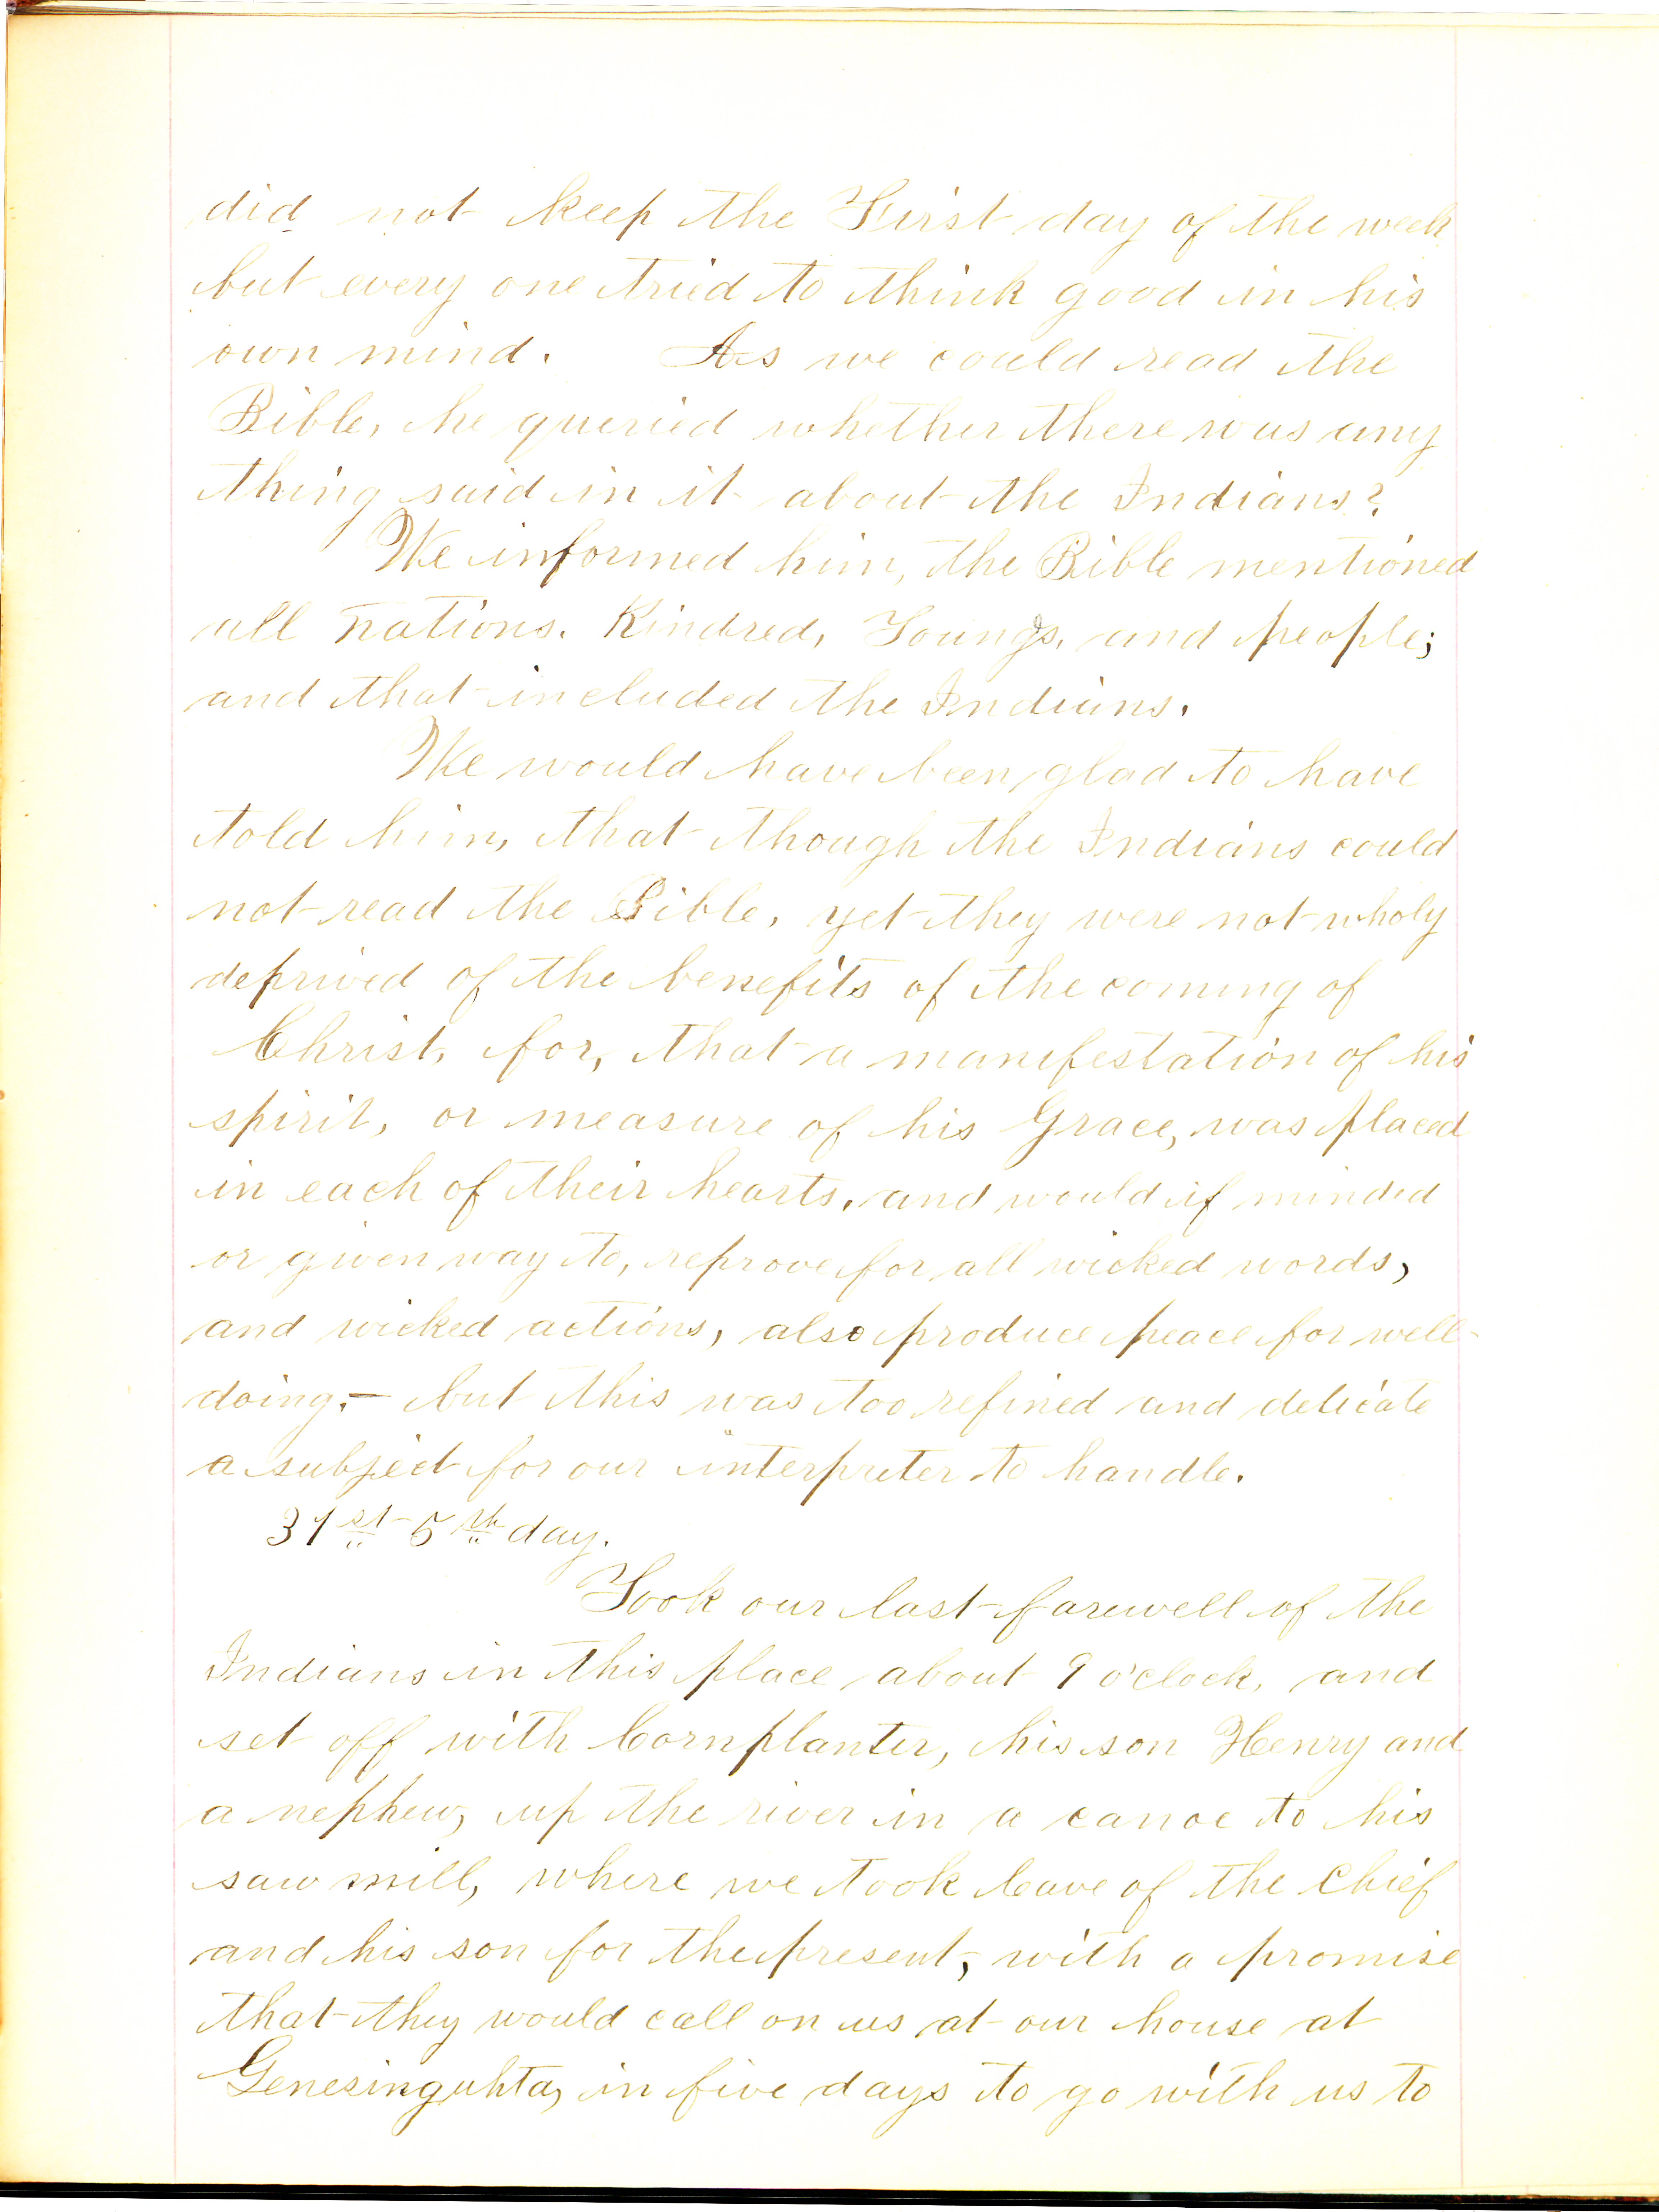 did not keep the First day of the week
but every one tried to think good in his
own mind. As we could read the
Bible, he queried whether there was any
thing said in it about the Indians?
We informed him, the Bible mentioned
all nations. Kindred, Toungs, and people;
and that included the Indians.
We would have been glad to have
told him, that though the Indians could
not read the Bible, yet they were not wholy
deprived of the benefits of the coming of
Christ, for, that a manifestation of his
spirit, or measure of his Grace, was placed
in each of their hearts, and would if minded
or given way to, reprove for all wicked words,
and wicked actions, also produce peace for well-
doing,- but this was too refined and delicate
a subject for our interpreter to handle.
31st 5th day.
Took our last farewell of the
Indians in this place about 9 o'clock, and
set off with Cornplanter, his son Henry and
a nephew, up the river in a canoe to his
saw mill, where we took leave of the Chief
and his son for the present, with a promise
that they would call on us at our house at
Genesinguhta, in five days to go with us to